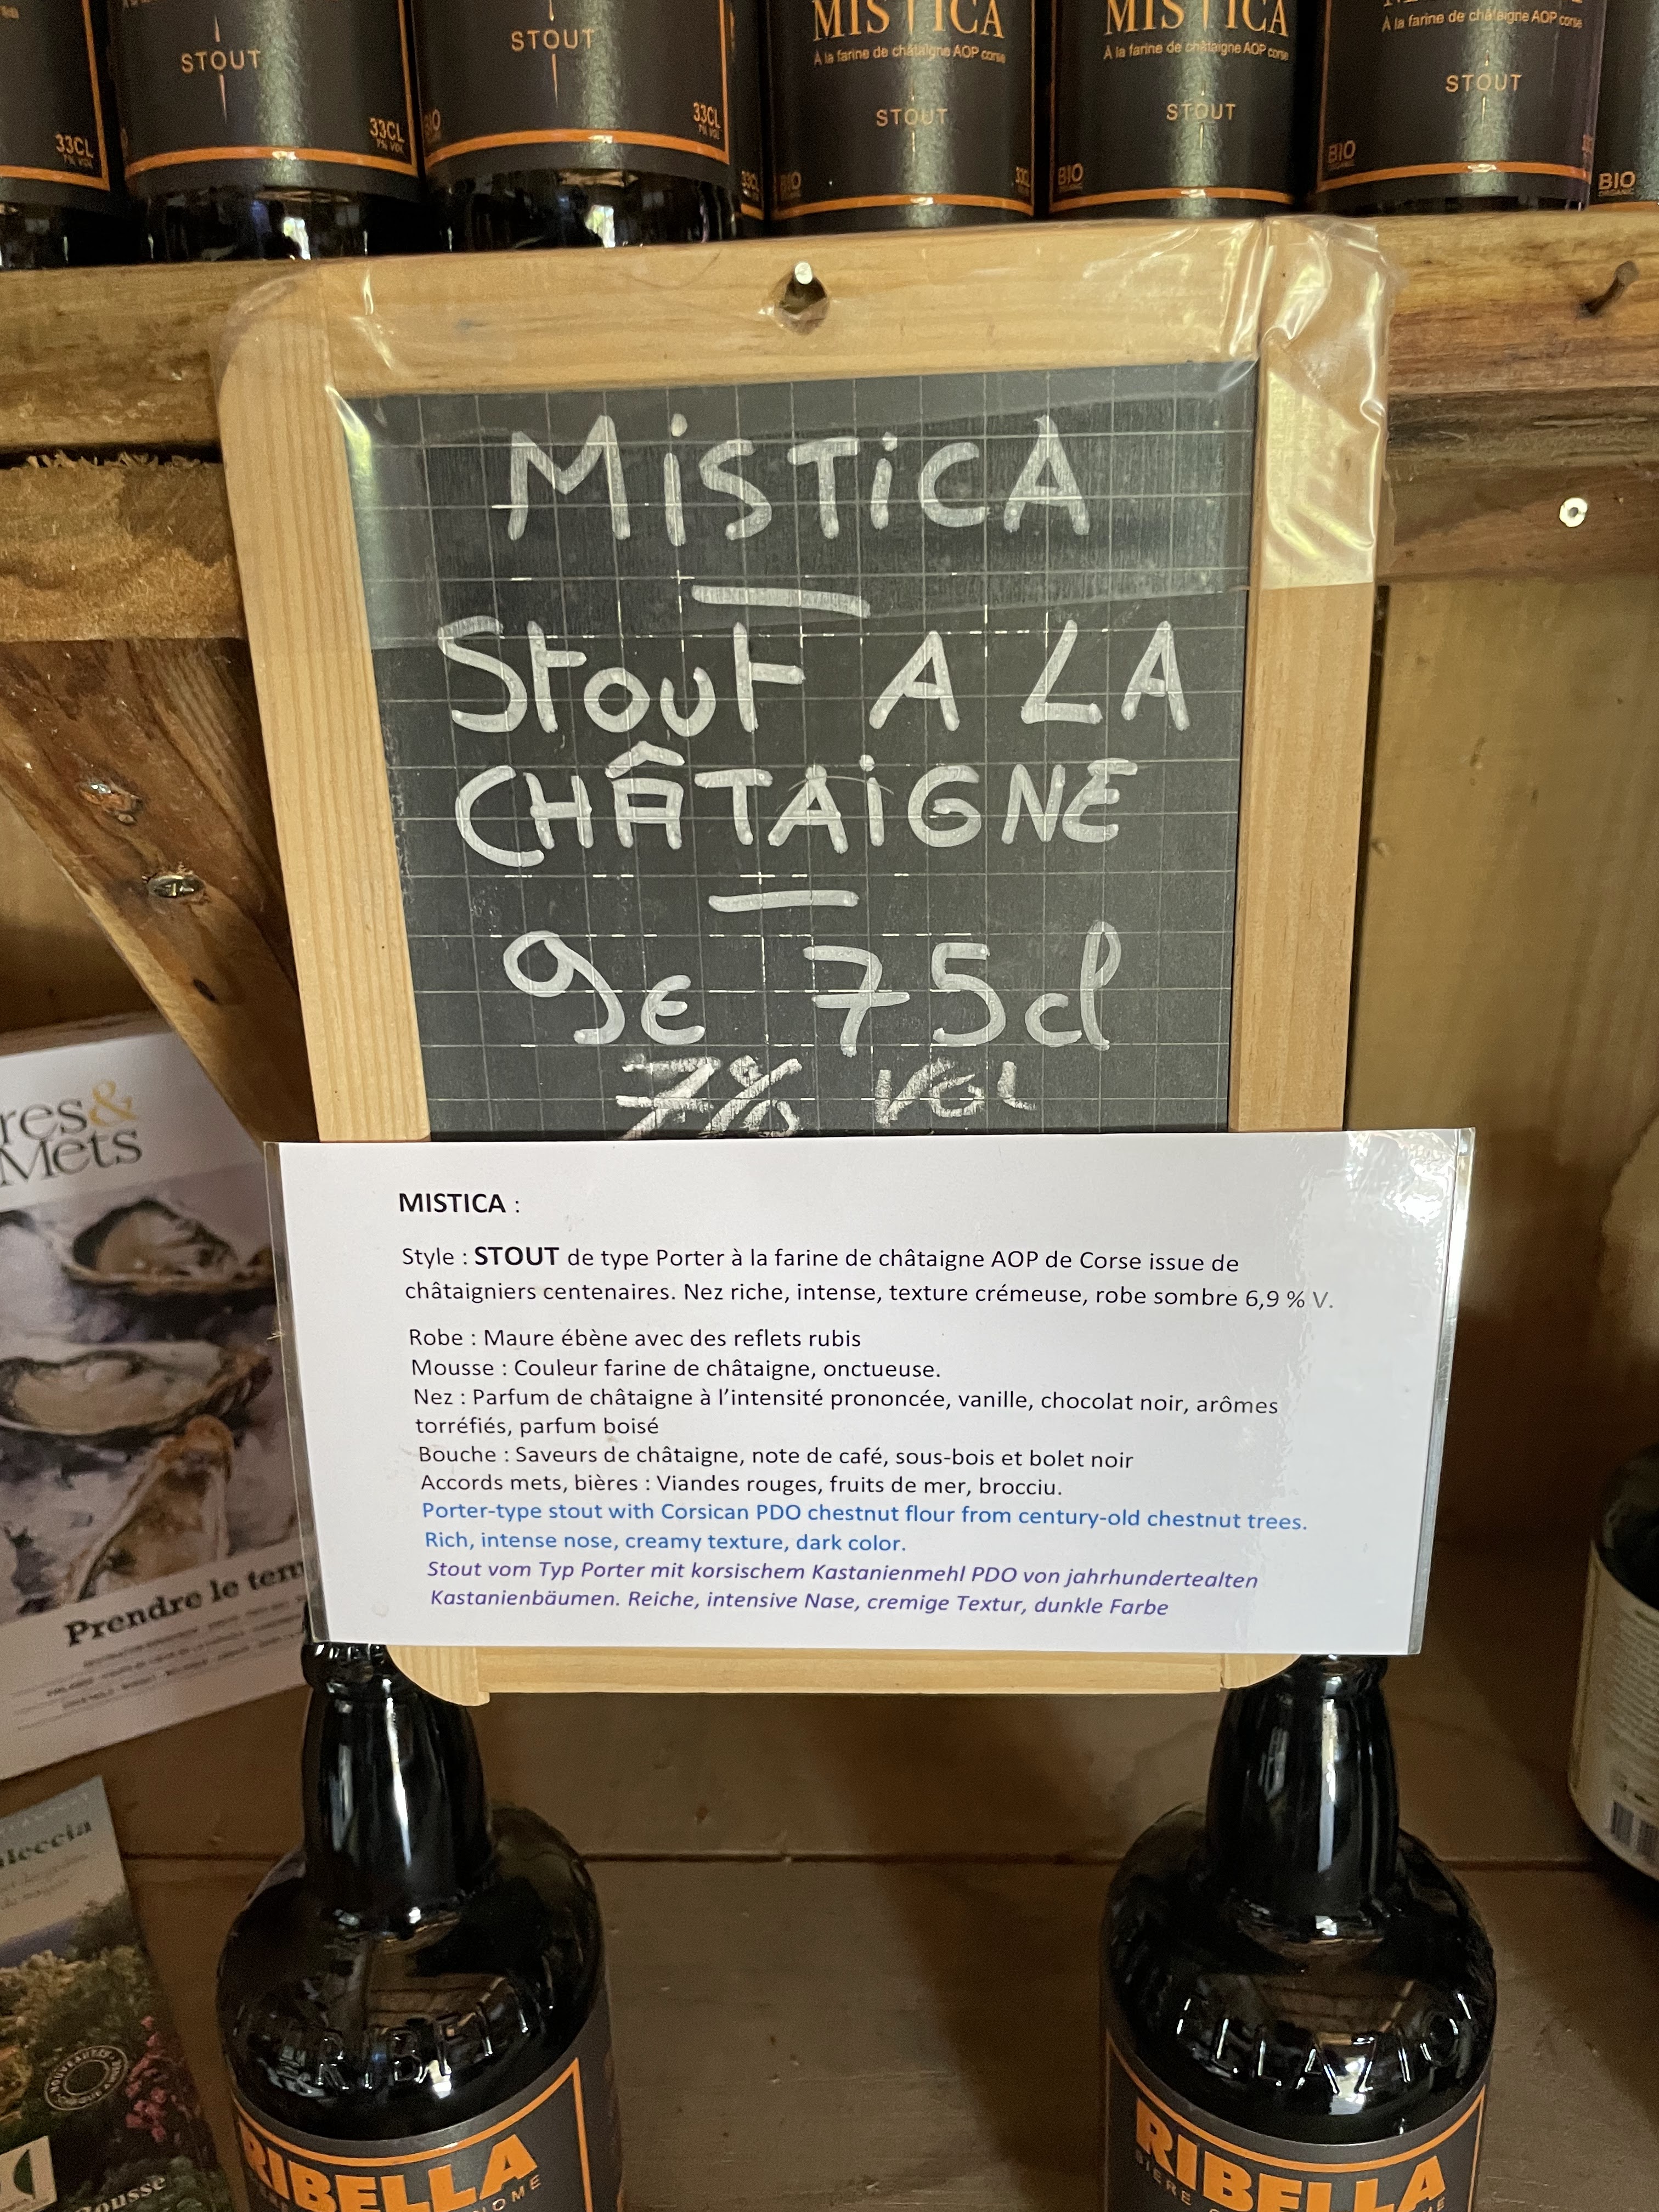 STOUT
33CL
7% VOL
STOUT
33CL
7% VOL
BIO
MISTICA
À la farine de châtaigne AOP corse
STOUT
BIO
MISTICA
À la farine de châtaigne AOP corse
STOUT
BIO
À la farine de châtaigne AOP corse
STOUT
BIO
BIO
MiSTiCA
Stout A LA
CHÂTAiGNE
9€ 75cl
7% VOL
MISTICA :
Style : STOUT de type Porter à la farine de châtaigne AOP de Corse issue de
châtaigniers centenaires. Nez riche, intense, texture crémeuse, robe sombre 6,9 % V.
Robe : Maure ébène avec des reflets rubis
Mousse : Couleur farine de châtaigne, onctueuse.
Nez : Parfum de châtaigne à l’intensité prononcée, vanille, chocolat noir, arômes
torréfiés, parfum boisé
Bouche : Saveurs de châtaigne, note de café, sous-bois et bolet noir
Accords mets, bières : Viandes rouges, fruits de mer, brocciu.
Porter-type stout with Corsican PDO chestnut flour from century-old chestnut trees.
Rich, intense nose, creamy texture, dark color.
Stout vom Typ Porter mit korsischem Kastanienmehl PDO von jahrhundertealten
Kastanienbäumen. Reiche, intensive Nase, cremige Textur, dunkle Farbe
res&
Mets
Prendre le tem
RIBELLA
RIBELLA